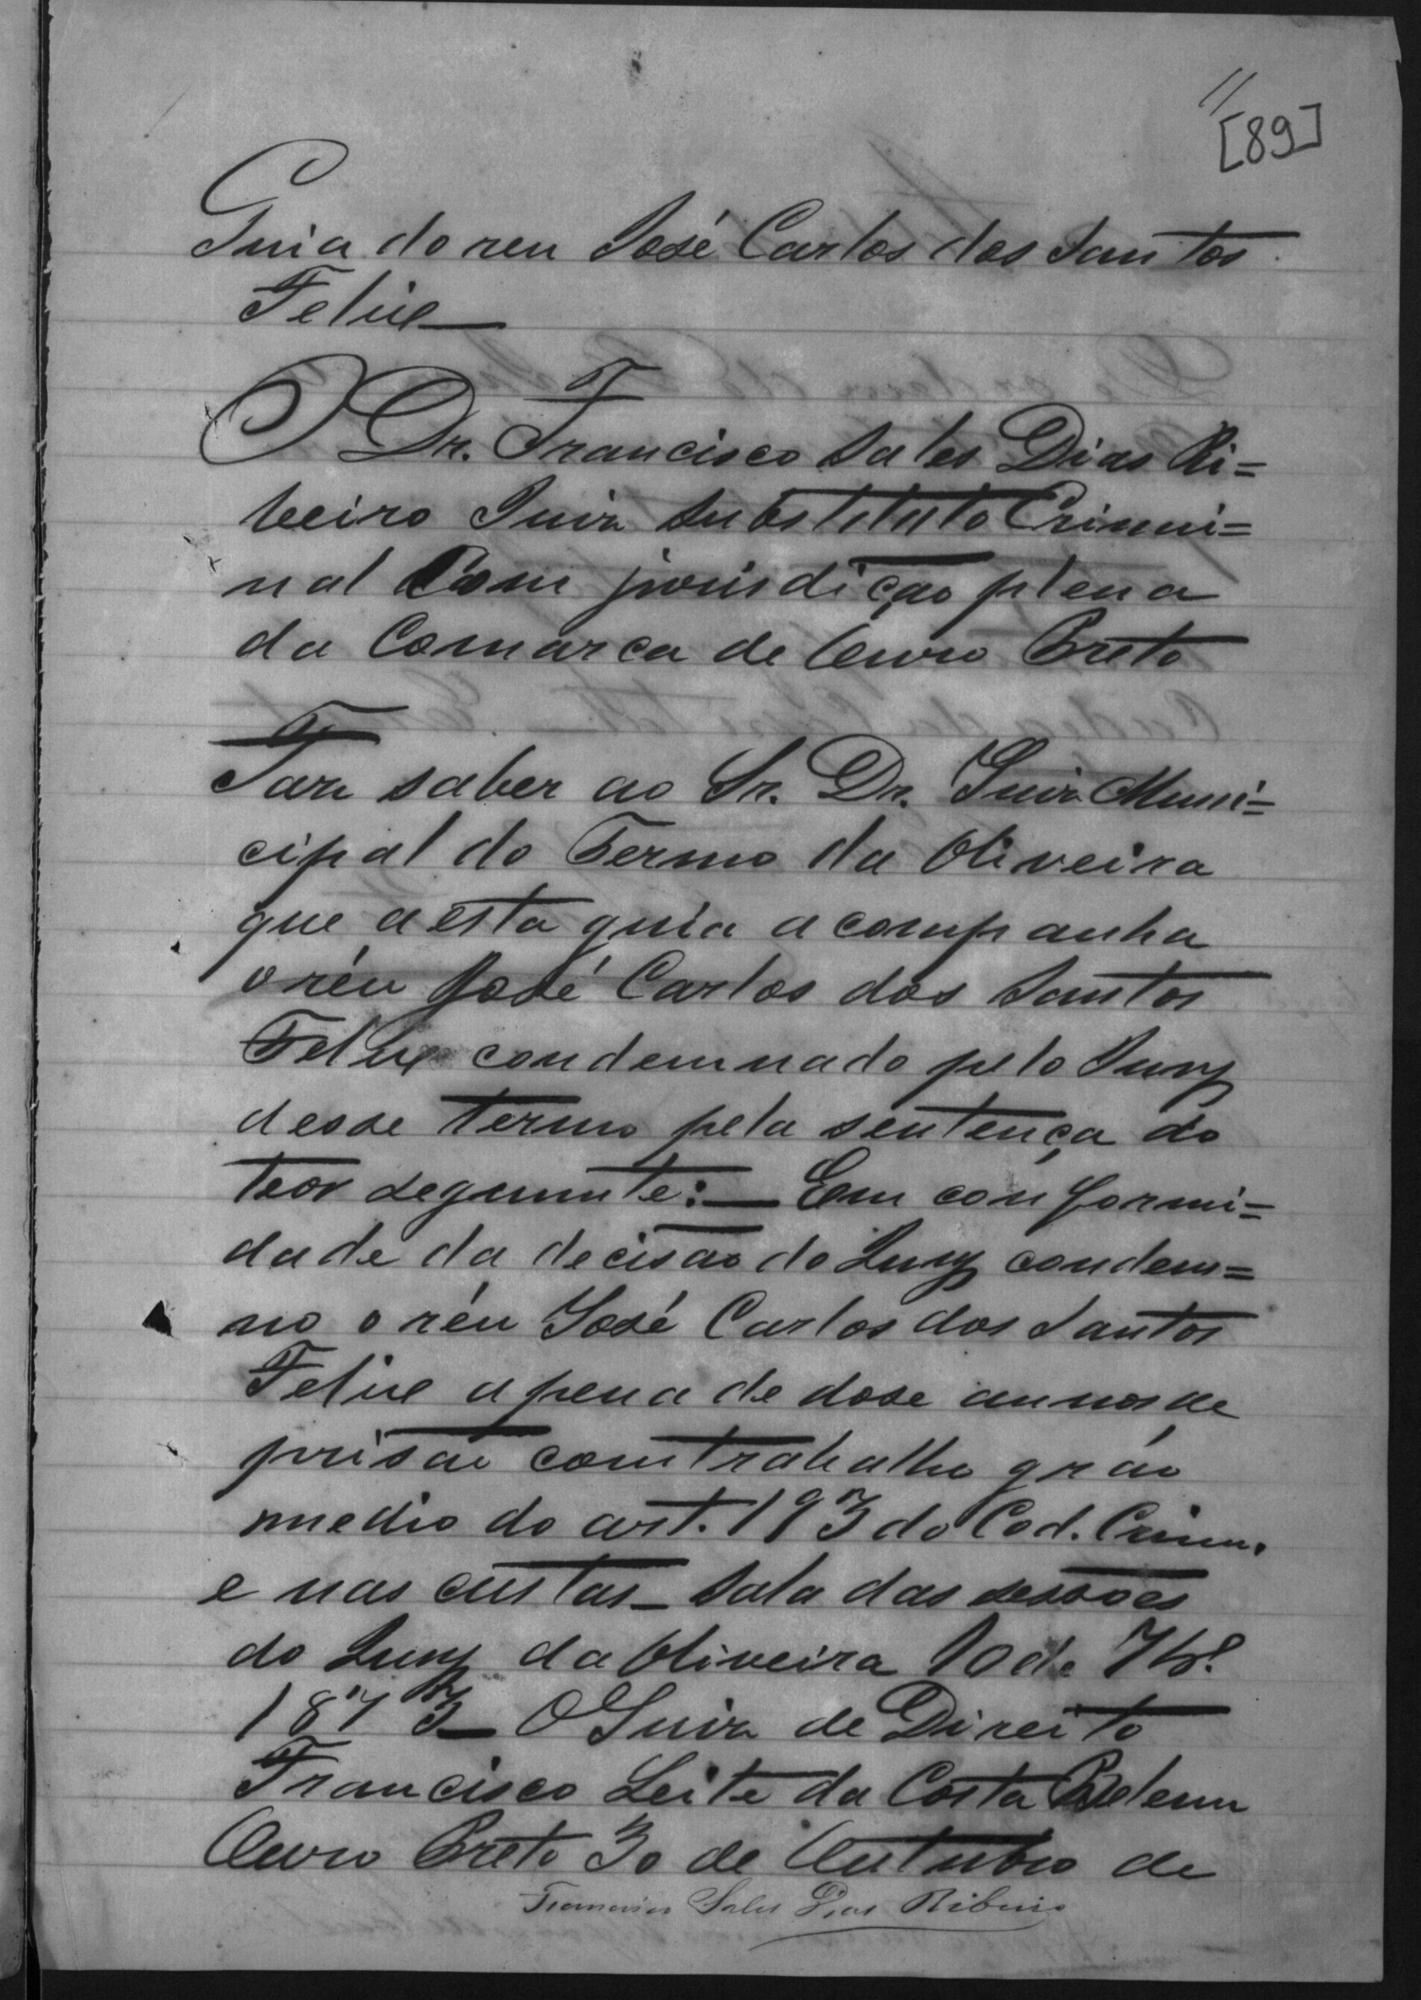 11
[89]
Guia do reu José Carlos dos Santos
Felix
O Dr. Francisco Sales Dias Ri=
beiro Juiz Substituto Crimi=
nal Com jurisdição plena
da Comarca de Ouro Preto
Faz saber ao Sr. Dr. Juiz Muni=
cipal do Termo da Oliveira
que a esta guia acompanha
o réu José Carlos dos Santos
Felix condemnado pelo Jury
desse termo pela sentença do
teor seguinte: — Em confor mi=
dade da decisão do Jury condem=
no o réu José Carlos dos Santos
Felix a pena de dose annos de
prisão com trabalho gráo
medio do art. 193 do Cod. Crim.
e nas custas — Sala das sessões
do Jury da Oliveira 10 de 7br.º
1873 — O Juiz de Direito
Francisco Leite da Costa Belem
Ouro Preto 30 de Outubro de
Francisco Sales Dias Ribeiro